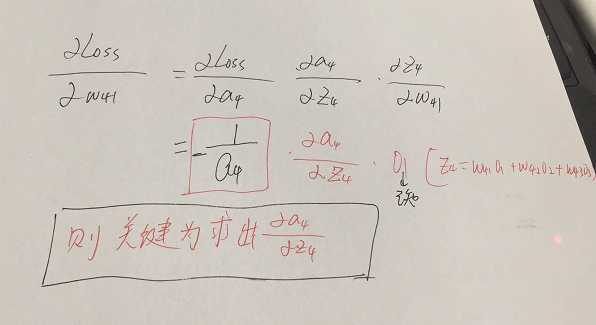 ∂Loss/∂w41 = ∂Loss/∂a4 ∂a4/∂z4 · ∂z4/∂w41
= -1/a4 · ∂a4/∂z4 · O1 [z4 = w41 O1 + w42 O2 + w43 O3
已知
则关键为求出 ∂a4/∂z4